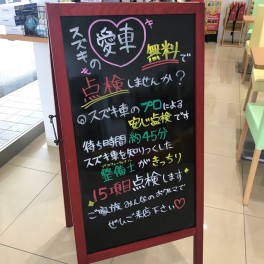 スズキの愛車
無料で
点検しませんか?
◎スズキ車のプロによる
安心点検です
待ち時間約45分
スズキ車を知りつくした
整備士がきっちり
15項目点検します
ご家族みんなのおクルマで
ぜひご来店下さい♡